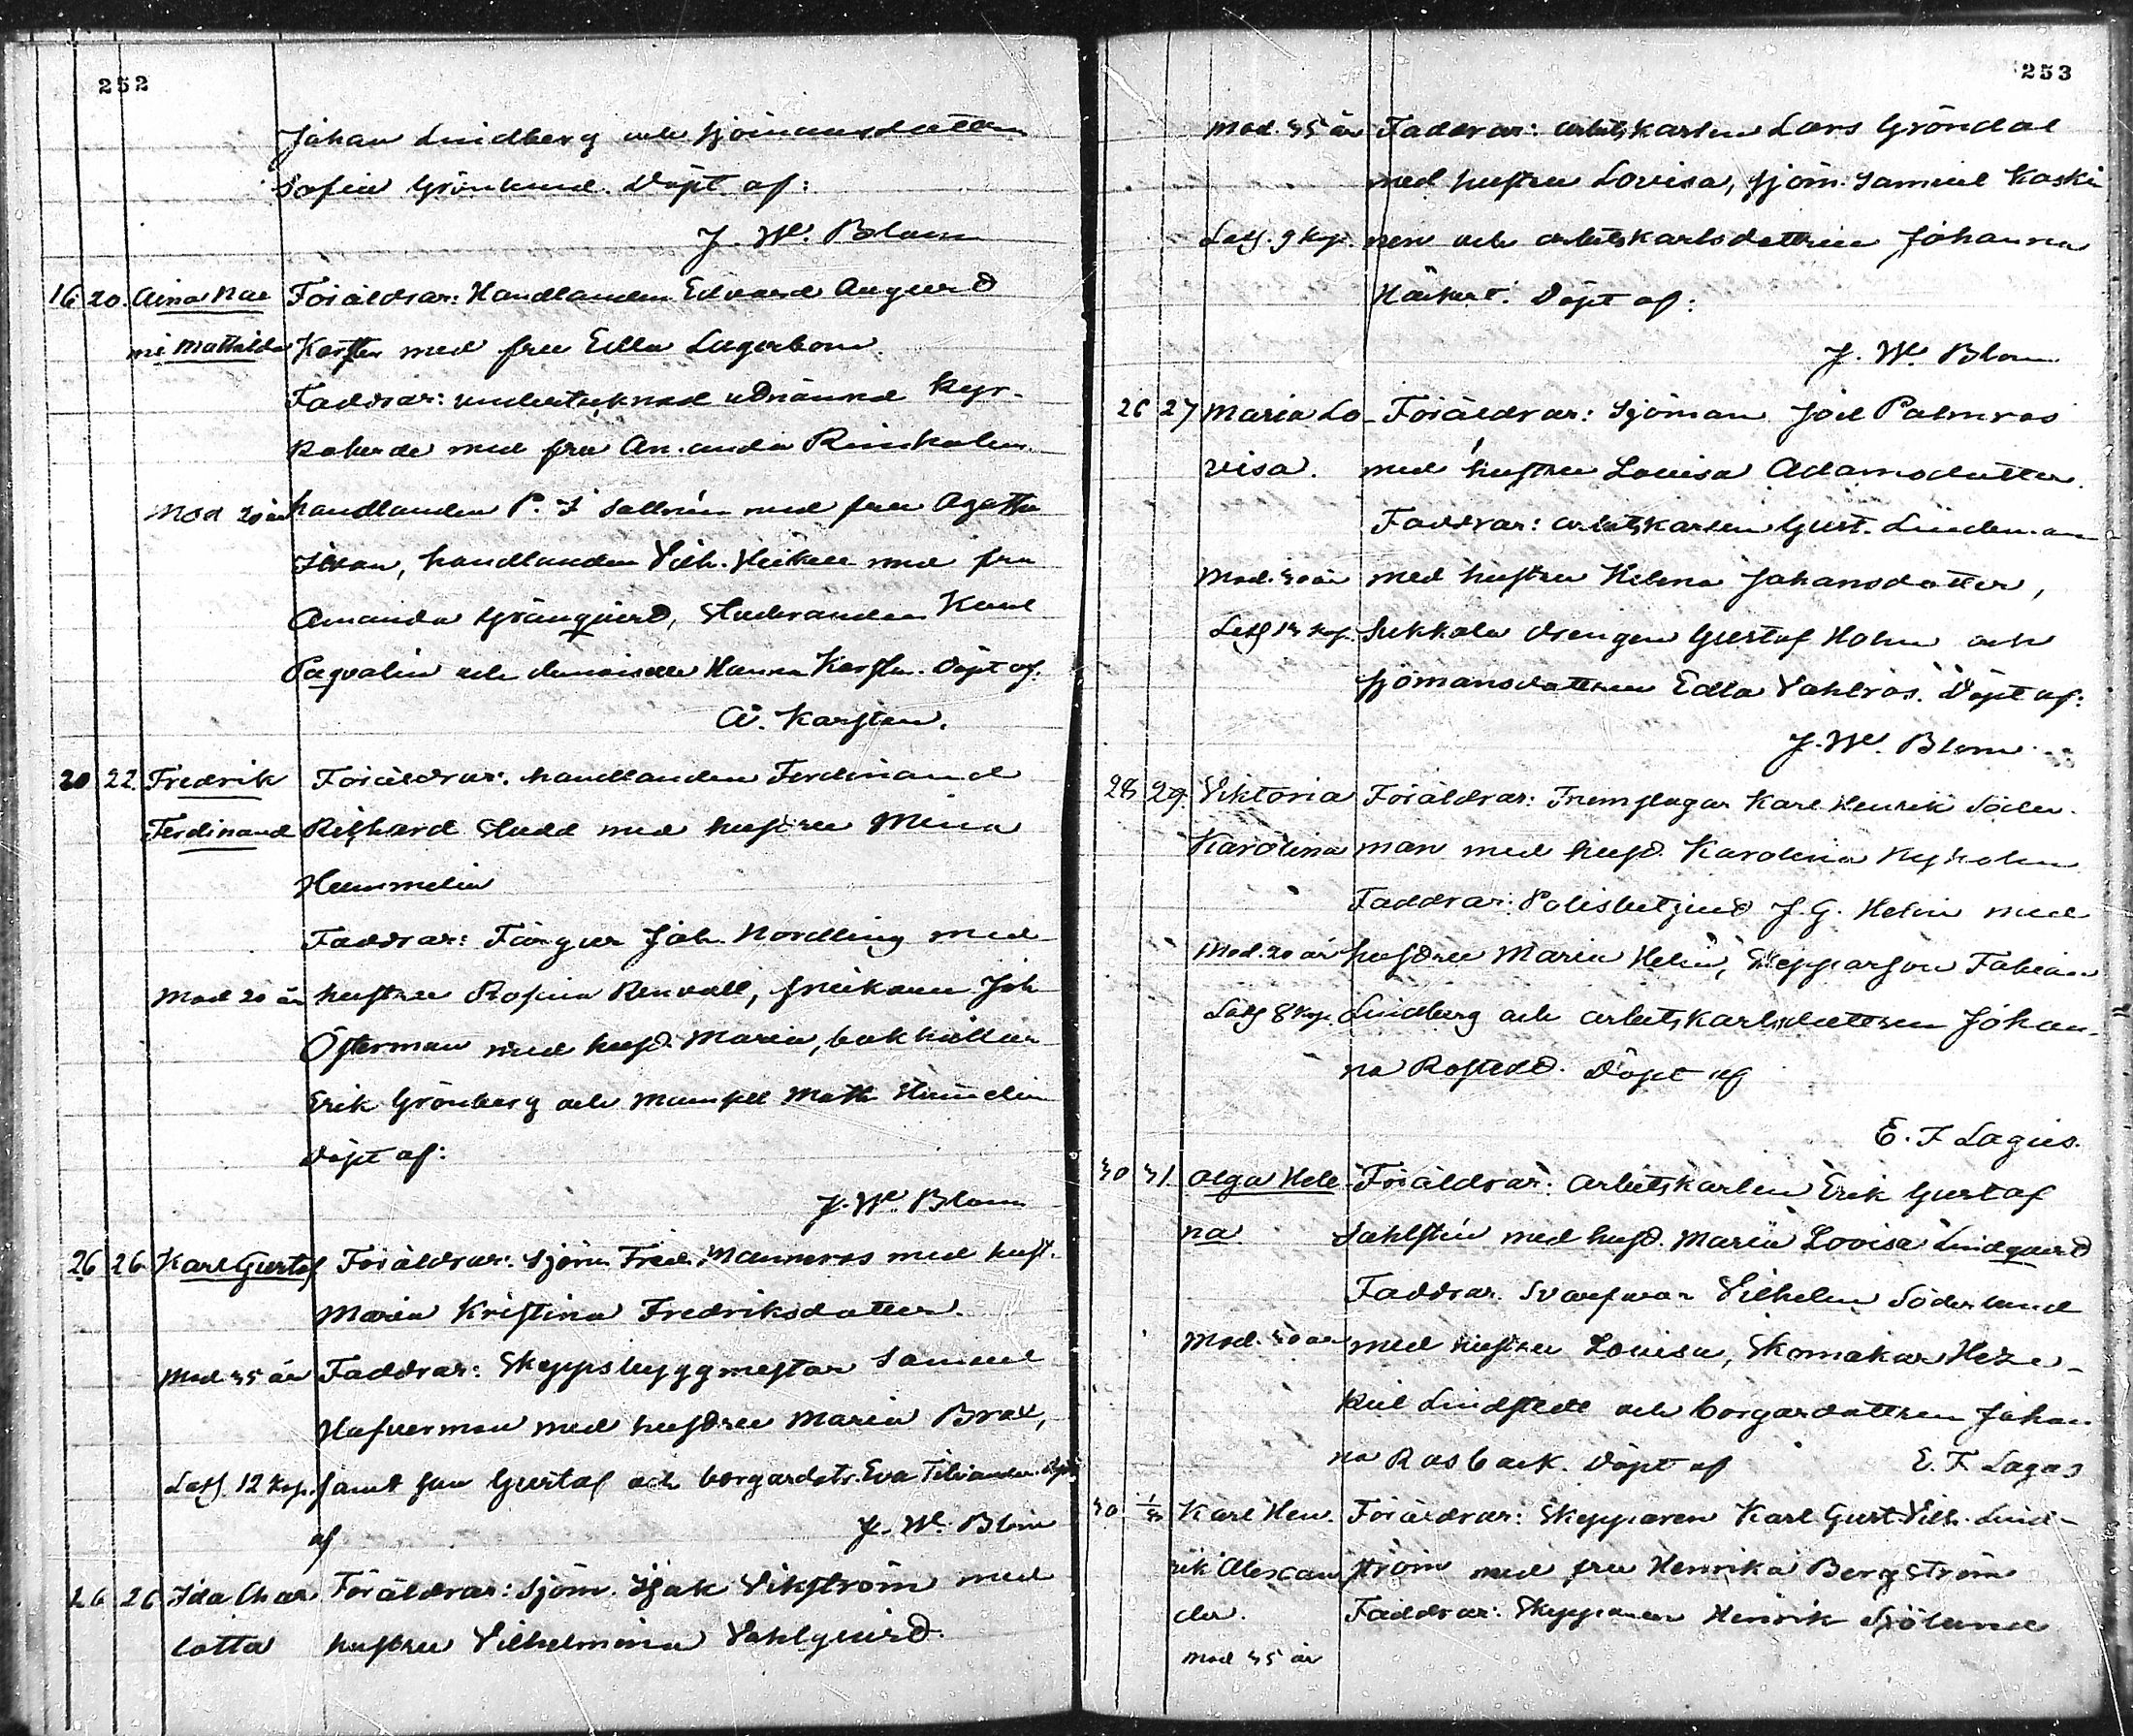 252
Johan Lindberg och sjömansdottren
Sofia Grönlund. Döpt af:
J. W. Blom
16 20. Aina Nae Föräldrar: Handlanden Edvard August
mi Mathilda Karsten med fru Edla Lagerbom
Faddrar: undertecknad kyr-
koherde med fru Amanda
Mod 20 år handlanden P. I Sallmén med fru Agatha
handlanden Vilh. Heikell med fru
Amanda Granqvist, Studeranden Karl
Paqvalin och demoiselle Hanna Karsten. Döpt af.
A. Karsten.
20 22. Fredrik Föräldrar: handlanden Ferdinand
Ferdinand Richard Stadd med hustru Mina
Hummelin
Faddrar: Färgar Joh. Nordling med
Mod 20 år hustru Rosina Renvall, snickaren Joh
Österman med hust. Maria, bokhållar
Erik Grönberg och Mamsell Math
Döpt af:
J. W. Blom
26 26 Karl Gustaf Föräldrar: Sjöm Fred. Mannerös med hust.
Maria Kristina Fredriksdotter.
Mod 35 år Faddrar: Skeppsbyggmestar Samuel
Hafverman med hustru Maria Brax,
Lösf. 12 kop. samt son Gustaf och borgardotr. Eva
af J. W. Blom
26 26 Ida Char Föräldrar: Sjöm. Isak Vikström med
lotta hustru Vilhelmina Vahlqvist.
253
Mod. 35 år Faddrar: arbetskarlen Lars Gröndal
med hustru Lovisa, sjöm. Samuel Kaski
9 kop. nen och arbetskarlsdottren Johanna
Döpt af:
J. W. Blom
26 27 Maria Lo- Föräldrar: Sjöman Joel Palmros
visa. med hustru Lovisa Adamsdotter.
Faddrar: arbetskarlen Gust. Lindeman
Mod. 30 år med hustru Helena Johansdotter,
kop. drengen Gustaf Holm och
sjömansdottren Edla Vahlros. Döpt af:
J. W. Blom
28 29. Viktoria Föräldrar: Karl Henrik Söder-
Karolina man med hust. Karolina Nyholm
Faddrar: Polisbetjent J. G. Helin med
Mod. 20 år hustru Maria Helin, Skepparson Fabian
8 kop. Lindberg och arbetskarlsdottren Johan-
na Rostedt. Döpt af
E. F Lagus.
30 31 Olga Hele- Föräldrar: Arbetskarlen Erik Gustaf
na Sahlstén med hust. Maria Lovisa Lindqvist
Faddrar. Svarfvar Vilhelm Söderlund
Mod. 30 år med hustru Lovisa, Skomakar Heze-
kiel Lindstedt och borgardottren Johan
na Rosback. Döpt af E. F. Lagus
30 Karl Hen- Föräldrar: Skepparen Karl Gust. Vilh. Lind-
rik Alexan ström med fru Henrika Bergström
der. Faddrar: Skepparen Henrik Sjölund
Mod 35 år